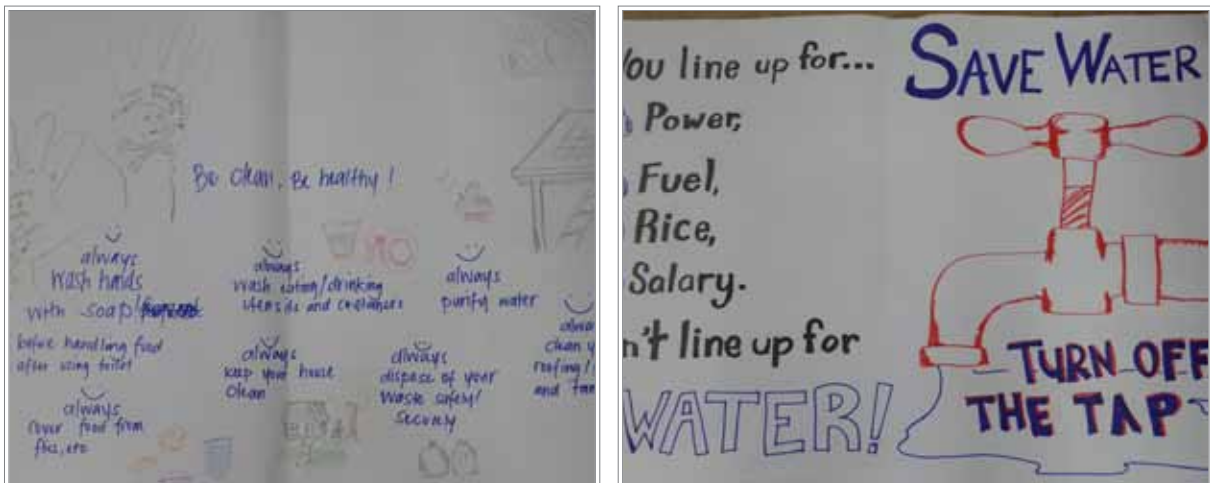 Be clean, Be healthy!
always
wash hands
with soap/
before handling food
after using toilet
always
cover food from
flies, etc
always
wash eating/drinking
utensils and containers
always
keep your house
clean
always
purify water
always
dispose of your
waste safely/
securely
clean
roofing/
and
You line up for...
Power,
Fuel,
Rice,
Salary.
line up for
WATER!
SAVE WATER
TURN OFF
THE TAP